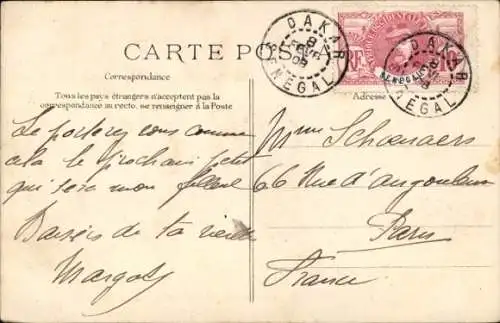 CARTE POSTALE
Correspondance
Tous les pays étrangers n'acceptent pas la
correspondance au recto. se renseigner à la Poste
Le porterez vous comme
cela le prochain petit
qui sera mon filleul
Baisers de ta vieille
Margot
DAKAR
8
08
SENEGAL
AFRIQUE OCCIDENTALE
RF
10
SENEGAL
DAKAR
SENEGAL
Adresse
Mme Schoenaers
66 Rue d'Angoulême
Paris
France